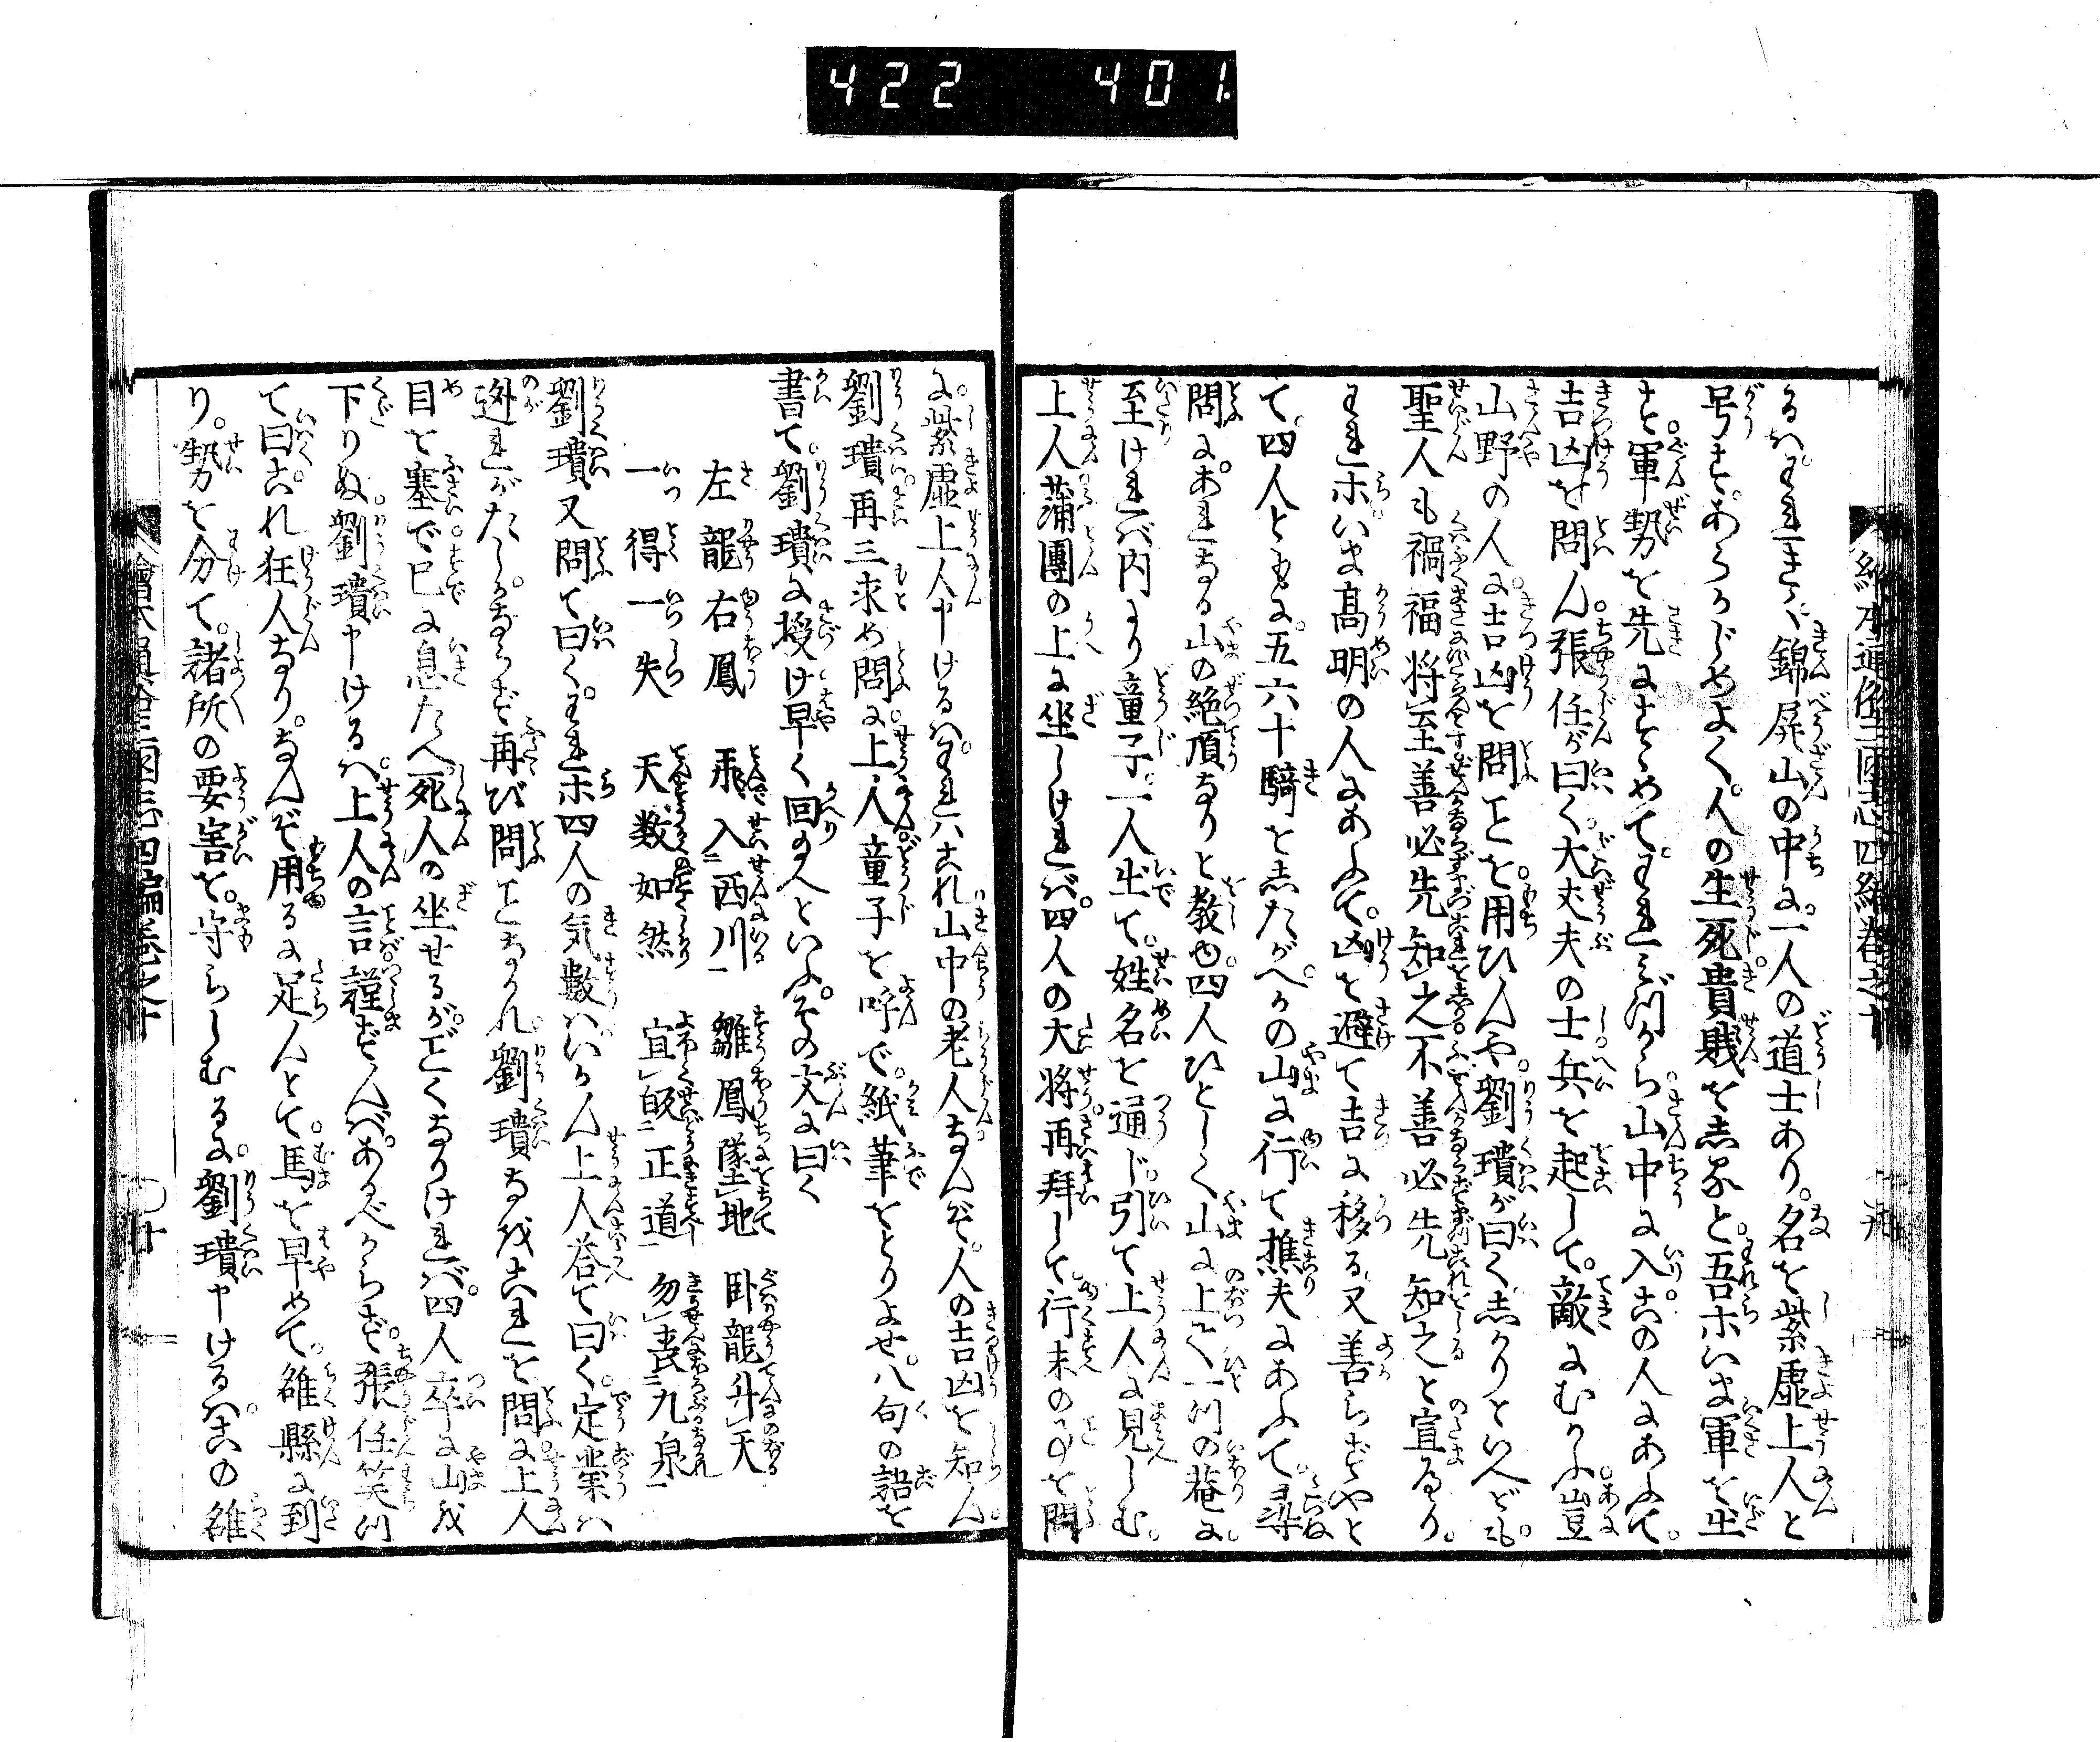 422 401.
絵本通俗三國志四編巻之十
るハ。われきく錦屏山の中に。一人の道士あり。名を紫虚上人と
号す。あらかじめよく。人の生死貴賎をしると。吾ホいま軍を出
さバ。軍勢を先にすゝめて。われミづから。山中に入。この人にあふて。
吉凶を問ん。張任が曰く大丈夫の士兵を起して。敵にむかふ。豈
山野の人に。吉凶を問ことを。用ひんや。劉璝が曰くしかりといへども。
聖人も禍福将至善必先知之不善必先知之と宣るなり。
われホいま高明の人にあふて。凶を避て吉に移る又善らずやと
て。四人ともに。五六十騎をしたがへ。かの山に行て樵夫にあふて。尋
問に。あれなる山の絶頂なりと教ゆ。四人ひとしく山に上て一ツの菴に。
至けれバ内より童子。一人出て。姓名を通じ。引て上人に見しむ。
上人蒲團の上に坐しけれバ。四人の大将再拜して。行末の事を問
に。紫虚上人申けるハ。われハこれ山中の老人なんぞ。人の吉凶を知ん。
劉璝再三求め問に。上人童子を呼で。紙筆をとりよせ。八句の語を
書て。劉璝に授け早く回れといふ。その文に曰く
左龍右鳳 飛入西川 雛鳳墜地 臥龍升天
一得一失 天数如然 宜皈正道 勿喪九泉
劉璝又問て曰く。われホ四人の気數ハ。いかん上人答て曰く。定業ハ
迯れがたし。かならず再び問ことなかれ。劉璝なをこれを問に。上人
目を塞で。已に息たへ。死人の坐せるがごとくなりけれバ。四人卒に山を
下りぬ。劉璝申けるハ。上人の言謹ずんバ。あるべからず。張任笑ツ
て曰これ狂人なり。なんぞ用るに足んとて。馬を早めて。雒縣に到
り。勢を分て。諸所の要害を。守らしむるに。劉璝申けるハ。この雒
繪本通俗三國志四編巻之十 〇廿